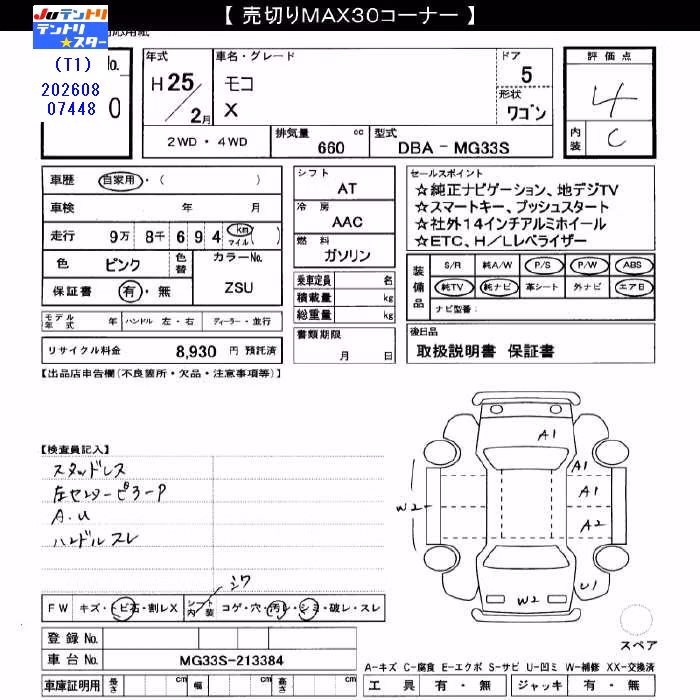 【 売切りMAX30コーナー 】
JUテントリ
テントリ★スター
対応用紙
(T1)
202608
07448
No.
0
年式
H25/2月
車名・グレード
モコ
X
ドア
5
形状
ワゴン
評価点
4
内装
C
2WD・4WD
排気量
660 cc
型式
DBA - MG33S
車歴 自家用・( )
車検 年 月
走行 9万 8千 6 9 4 km マイル ( )
色 ピンク 色替
カラーNo.
ZSU
保証書 有・無
モデル年式 年 ハンドル 左・右 ディーラー・並行
リサイクル料金 8,930 円 預託済
シフト
AT
冷房
AAC
燃料
ガソリン
乗車定員 名
積載量 kg
総重量 kg
書類期限
月 日
セールスポイント
☆純正ナビゲーション、地デジTV
☆スマートキー、プッシュスタート
☆社外14インチアルミホイール
☆ETC、H/Lレベライザー
装備品
S/R 純A/W P/S P/W ABS
純TV 純ナビ 革シート 外ナビ エアB
ナビ型番:
後日品
取扱説明書 保証書
【出品店申告欄(不良箇所・欠品・注意事項等)】
【検査員記入】
スタッドレス
左センターピラーP
A.U
ハンドルスレ
シワ
A1
A1
A1
A2
W2
U1
W2
FW キズ・トビ石・割レX
シフト内装 コゲ・穴・汚レ・シミ・破レ・スレ
スペア
登録 No.
車台 No. MG33S-213384
車庫証明用 長さ cm 幅 cm 高さ cm
A-キズ C-腐食 E-エクボ S-サビ U-凹ミ W-補修 XX-交換済
工具 有・無 ジャッキ 有・無